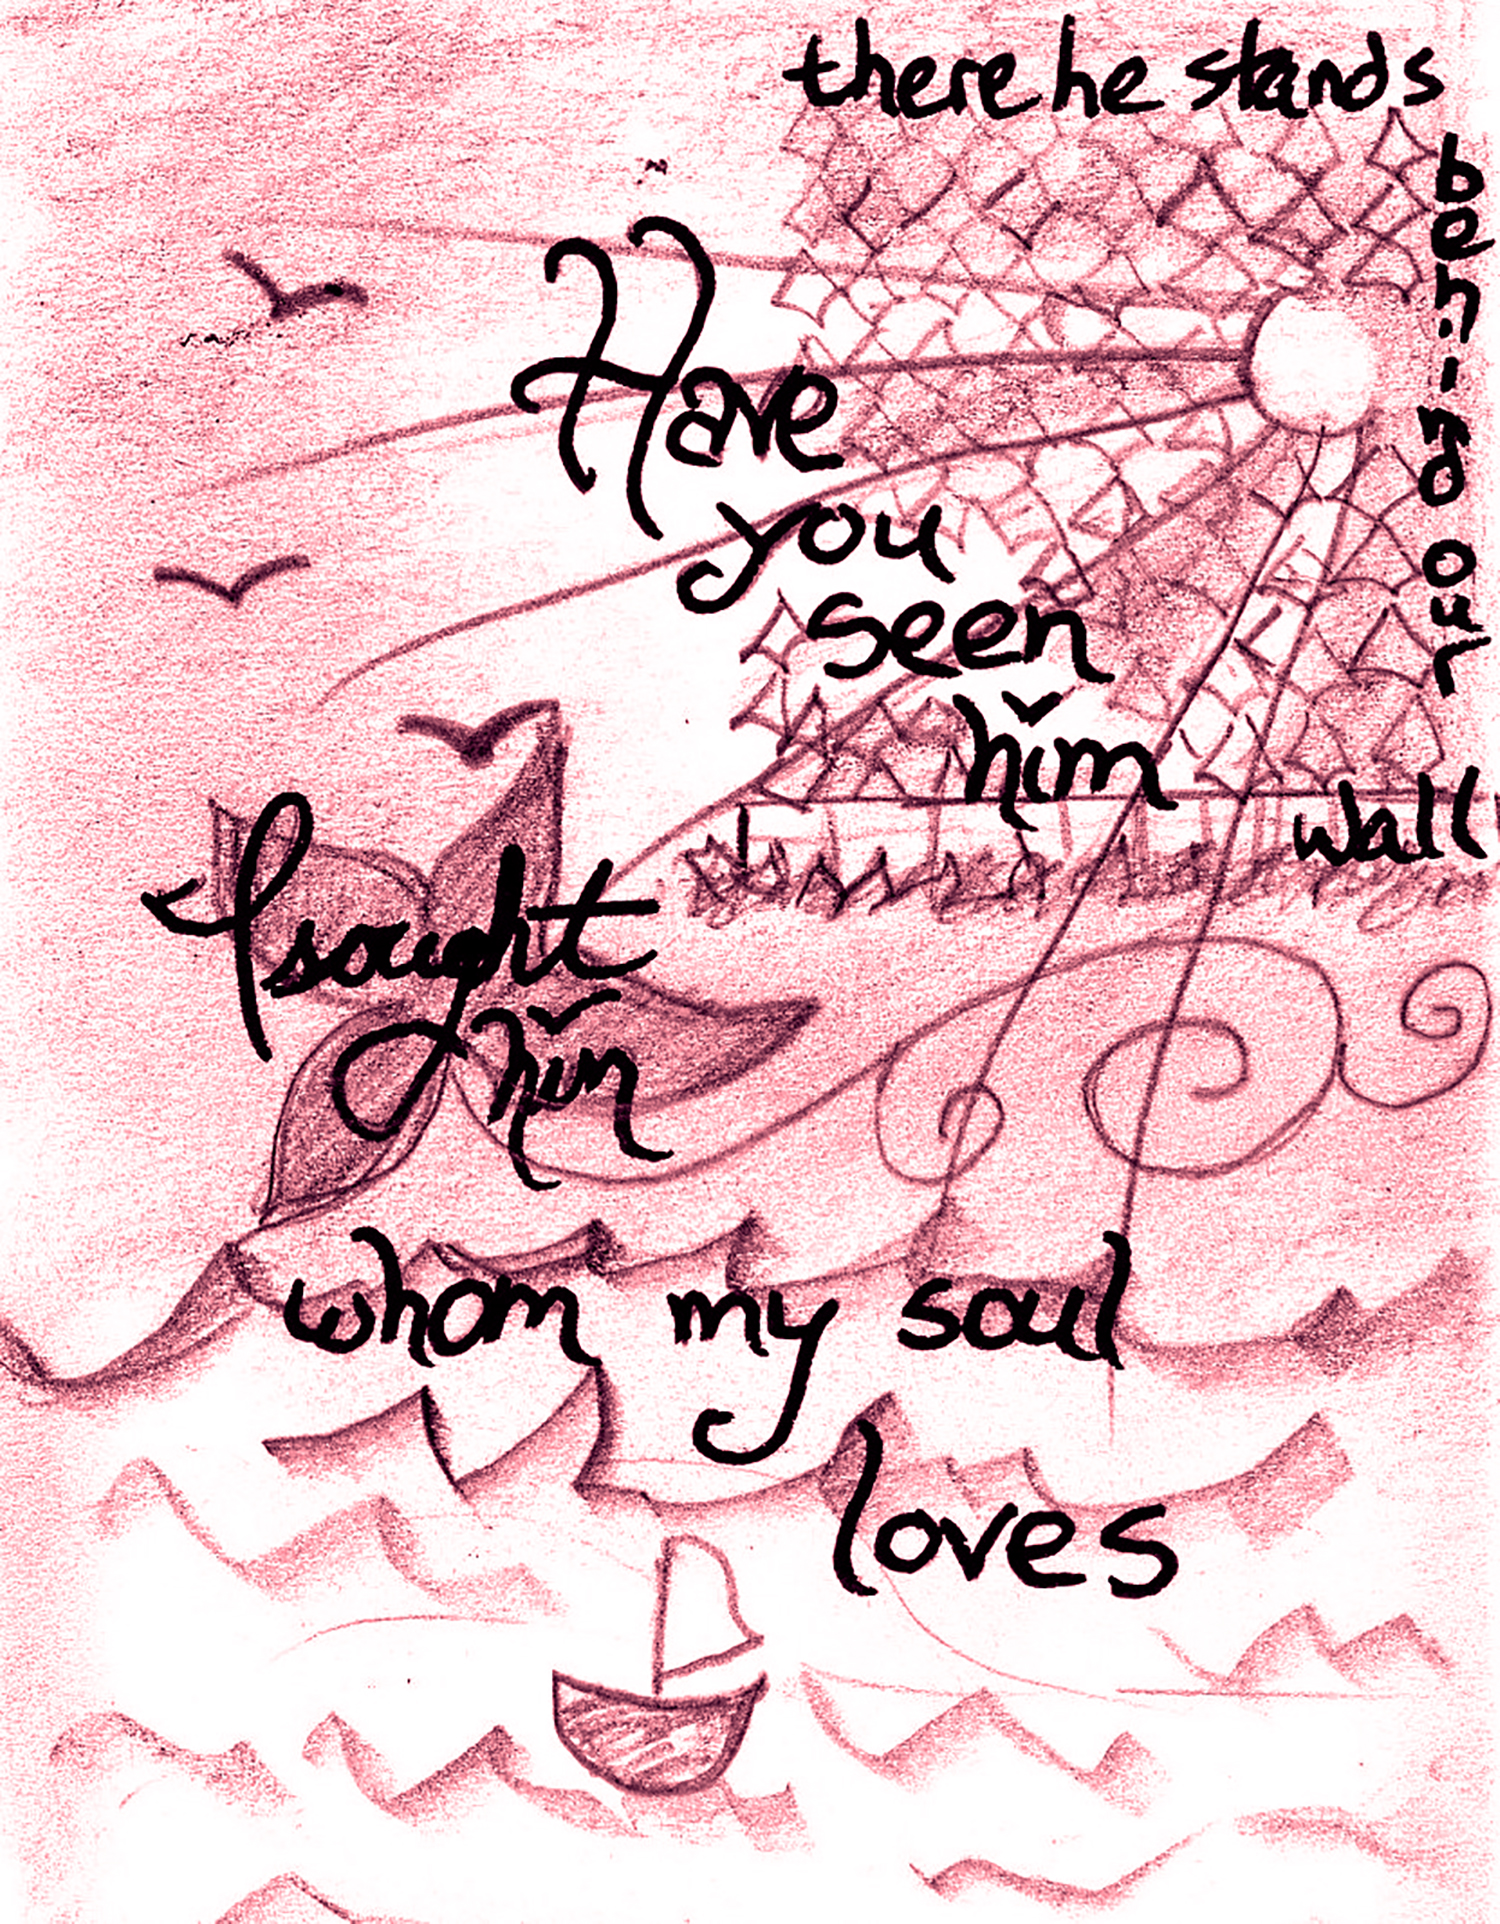 there he stands
behind our
wall
Have
you
seen
him
I sought
him
whom my soul
loves